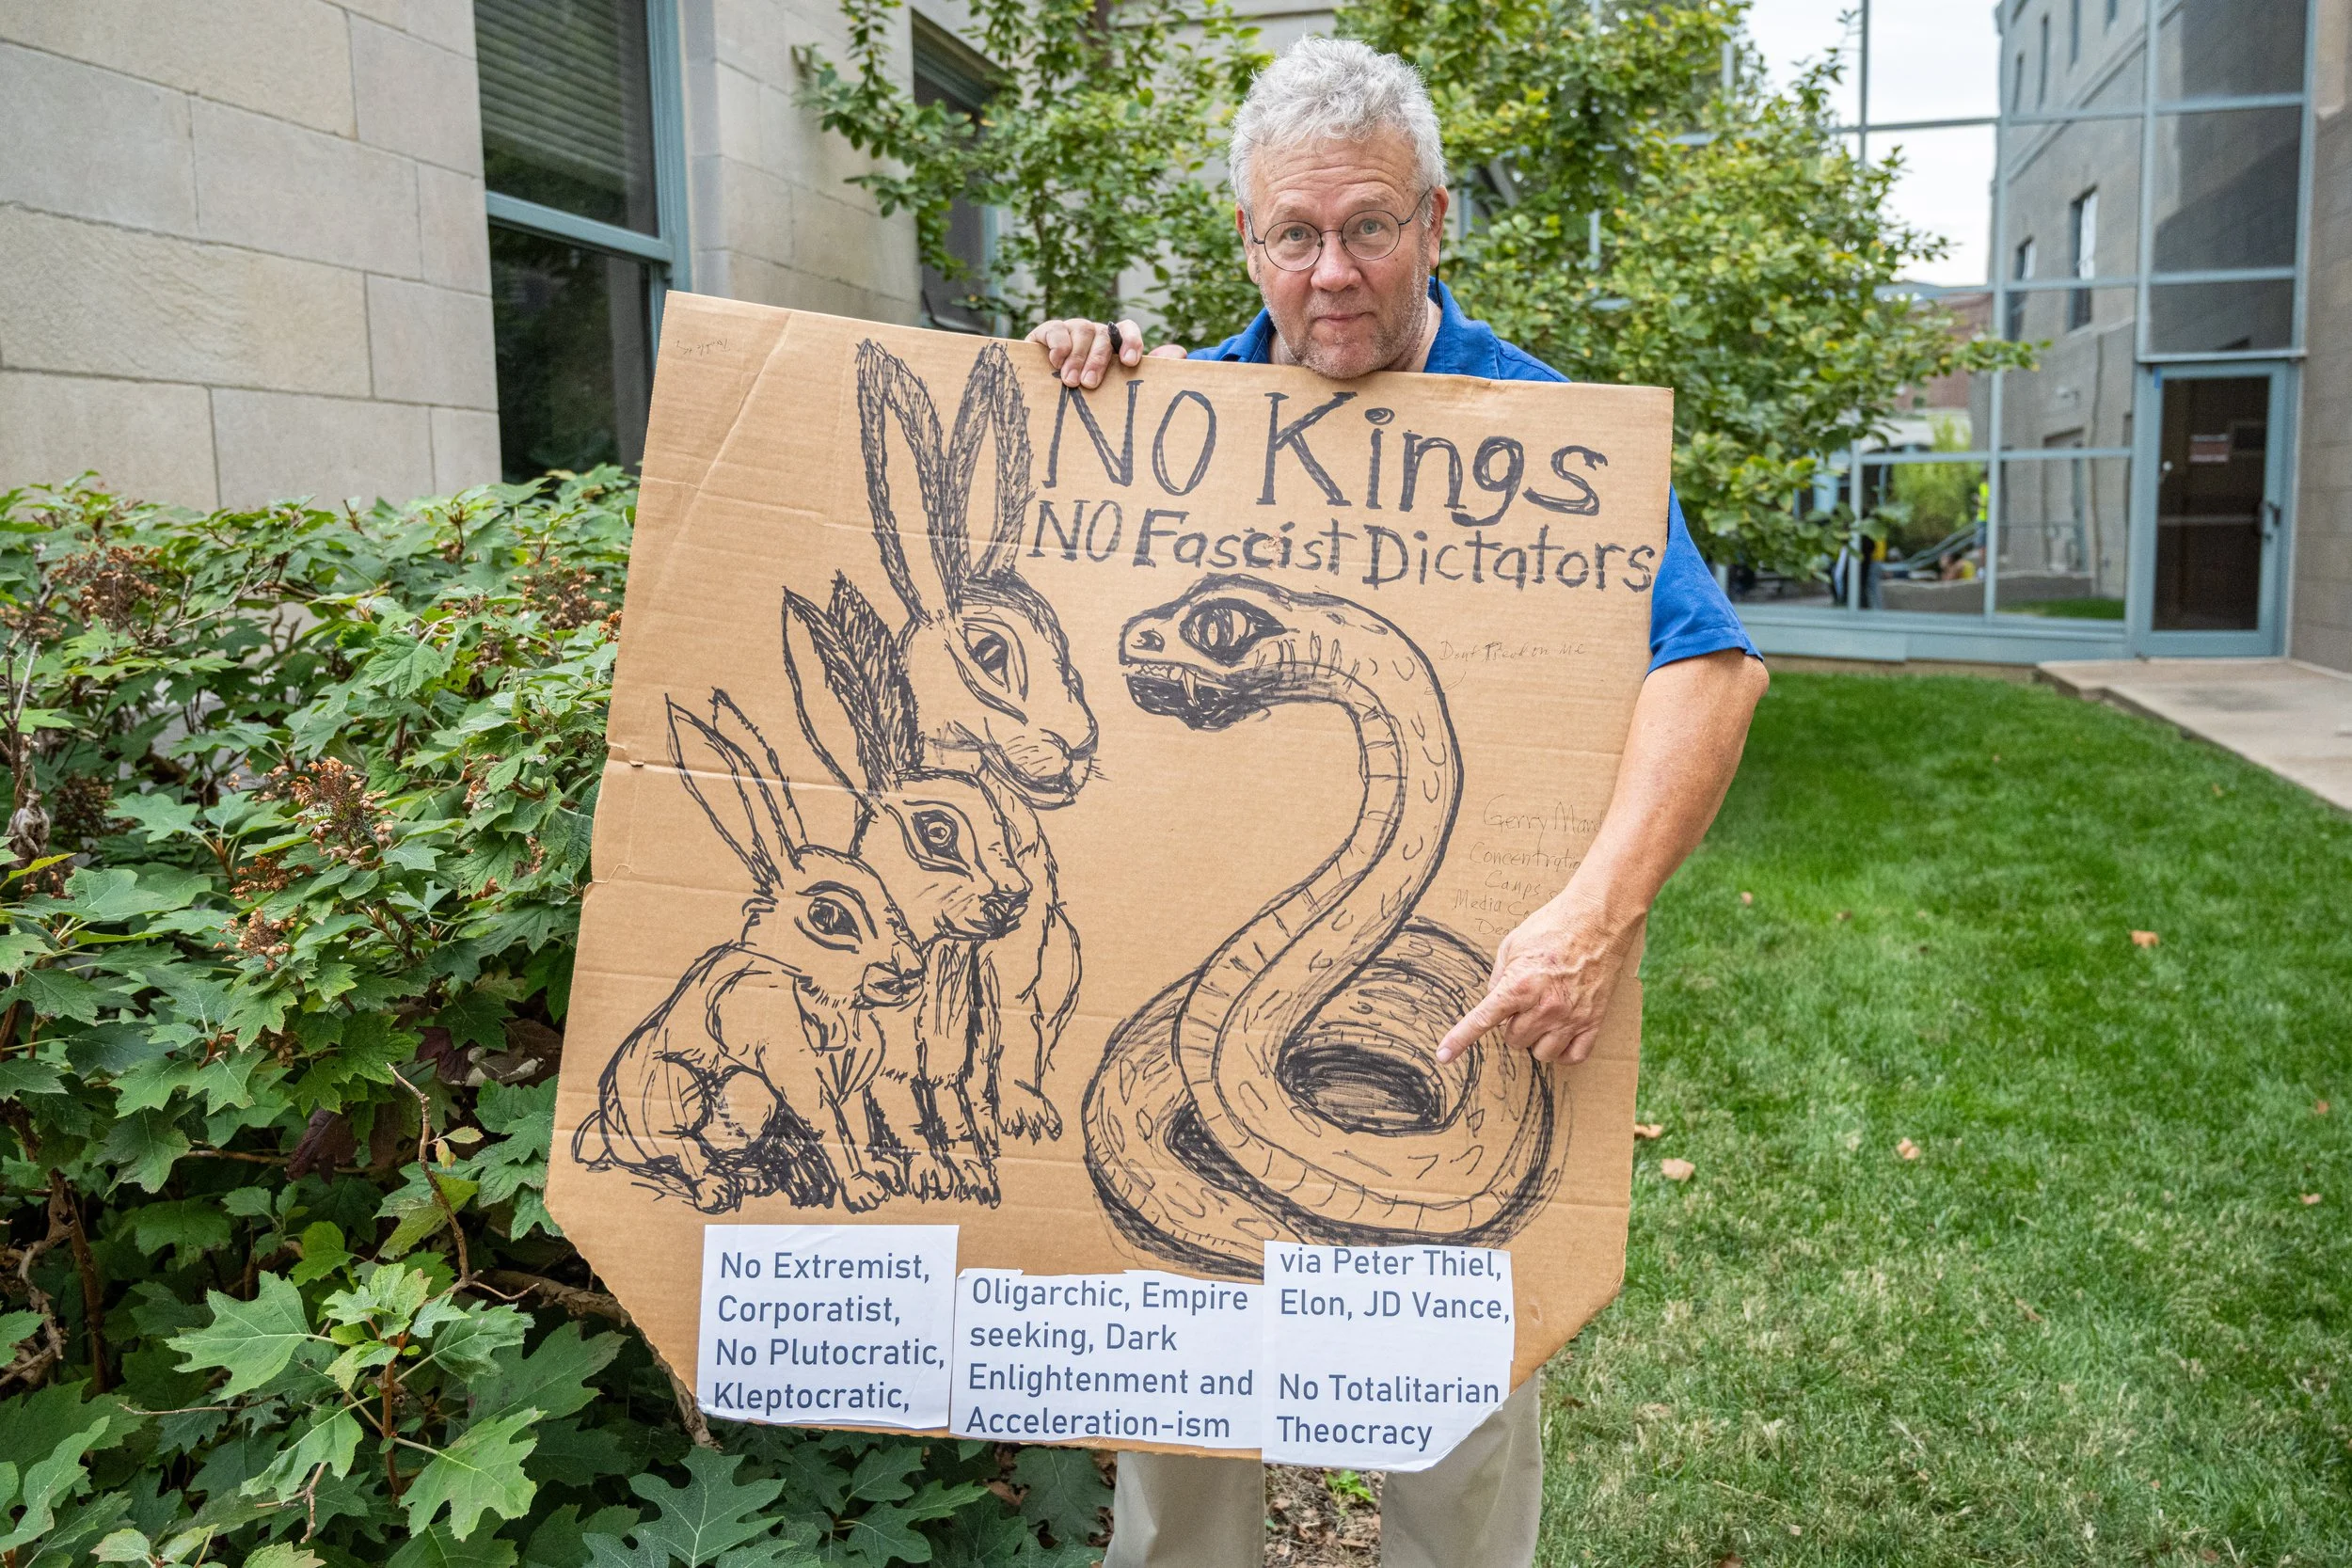 NO Kings
NO Fascist Dictators
Dont Tread on Me
Gerry
Concentration
Camps
Media
No Extremist,
Corporatist,
No Plutocratic,
Kleptocratic,
Oligarchic, Empire
seeking, Dark
Enlightenment and
Acceleration-ism
via Peter Thiel,
Elon, JD Vance,
No Totalitarian
Theocracy